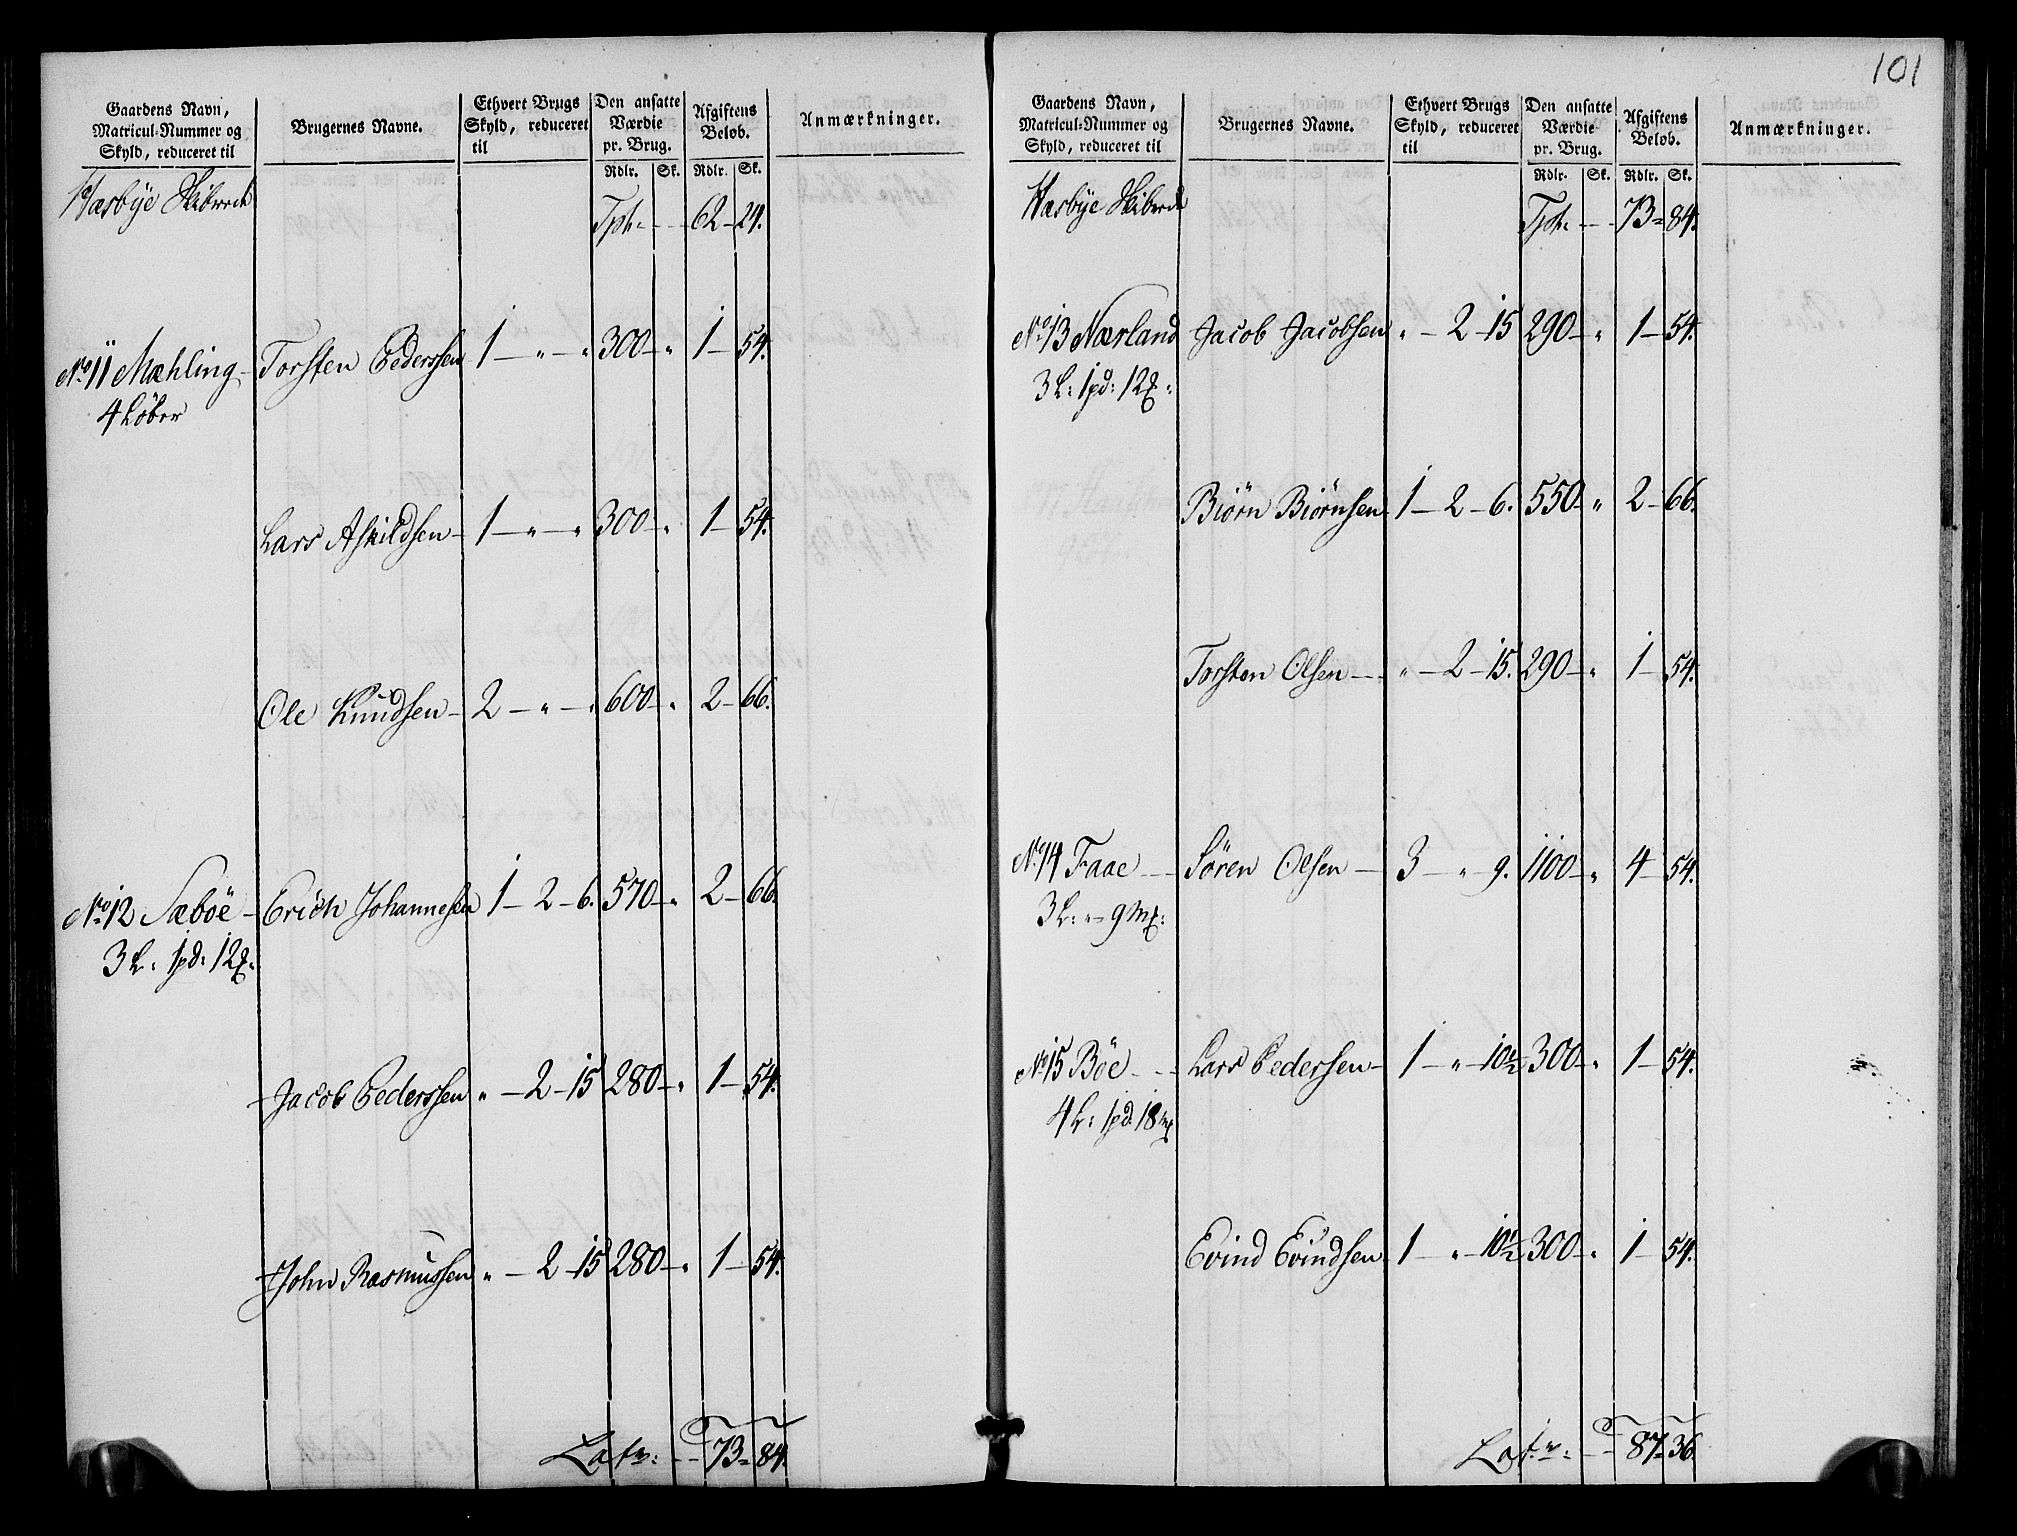 Gaardens Navn,
Matricul-Nummer og
Skyld, reduceret til
Brugernes Navne.
Ethvert Brugs
Skyld, reduceret
til
Den ansatte
Værdie
pr. Brug.
Rdlr. Sk.
Afgiftens
Beløb.
Rdlr. Sk.
Anmærkninger.
Hæsbÿe Skibrede
Tpt. - - 62 - 24.
No 11 Mæhling Torsten Pederssen 1 - " - " 300 - " 1 - 54.
4 Løber
Lars Askildsen - 1 - " - " 300 - " 1 - 54.
Ole Knudsen - 2 - " - " 600 - " 2 - 66.
No 12 Sæbøe - Erich Johannesen 1 - 2 - 6. 570 - " 2 - 66.
3 L: 1 pd: 12 ℔:
Jacob Pederssen " - 2 - 15 280 - " 1 - 54.
John Rasmussen " - 2 - 15 280 - " 1 - 54.
Latr: - - 73 - 84.
101
Gaardens Navn,
Matricul-Nummer og
Skyld, reduceret til
Brugernes Navne.
Ethvert Brugs
Skyld, reduceret
til
Den ansatte
Værdie
pr. Brug.
Rdlr. Sk.
Afgiftens
Beløb.
Rdlr. Sk.
Anmærkninger.
Hæsbÿe Skibrede
Tpt. - - 73 - 84.
No 13 Nærland Jacob Jacobsen " - 2 - 15 290 - " 1 - 54.
3 L: 1 pd: 12 ℔:
Biørn Biørnsen 1 - 2 - 6. 550 - " 2 - 66.
Torsten Olsen - - " - 2 - 15. 290 - " 1 - 54.
No 14 Faae - - Søren Olsen - 3 - " 9. 1100 - " 4 - 54.
3 L: " - 9 M℔:
No 15 Bøe - - Lars Pedersen - 1 - " - 10½ 300 - " 1 - 54.
4 L: 1 pd: 18 m℔
Evind Evindsen 1 - " - 10½ 300 - " 1 - 54.
Latr: - - 87 - 36.